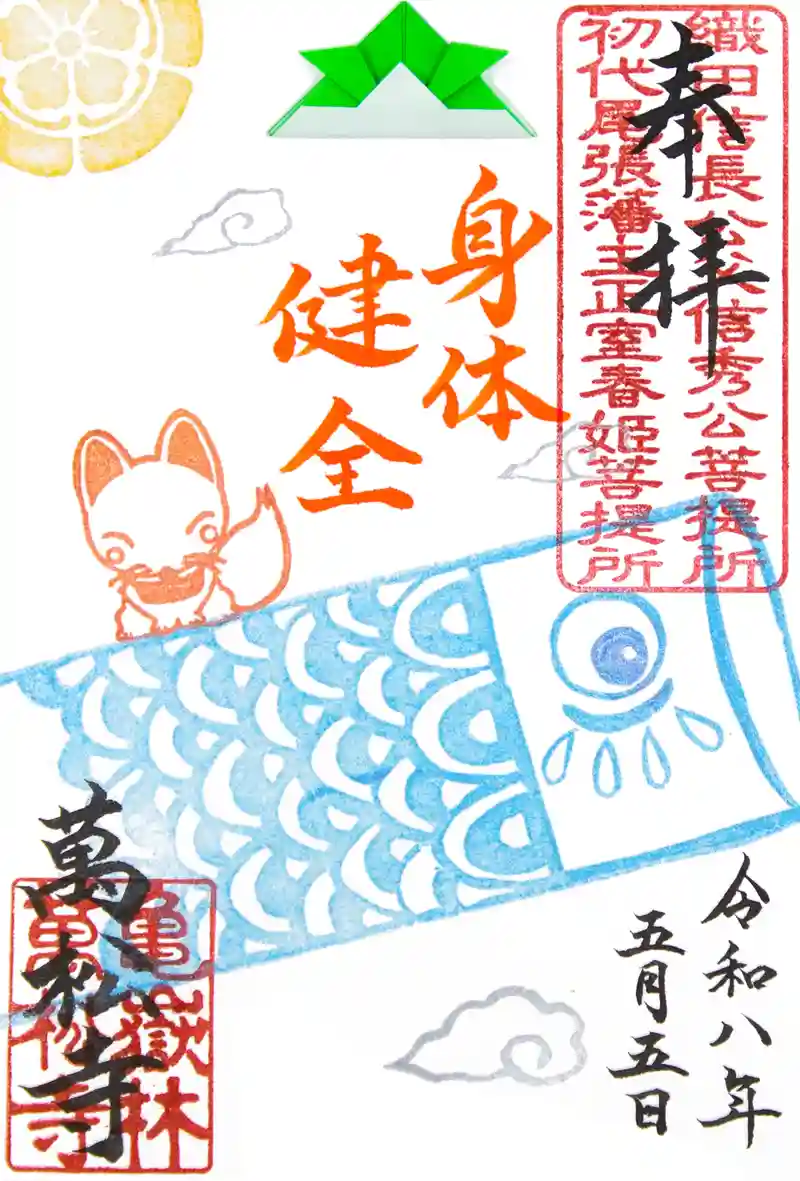 奉拝
織田信長公父信秀公菩提所
初代尾張藩主正室春姫菩提所
身体
健全
令和八年
五月五日
萬松寺
亀嶽林
萬松寺